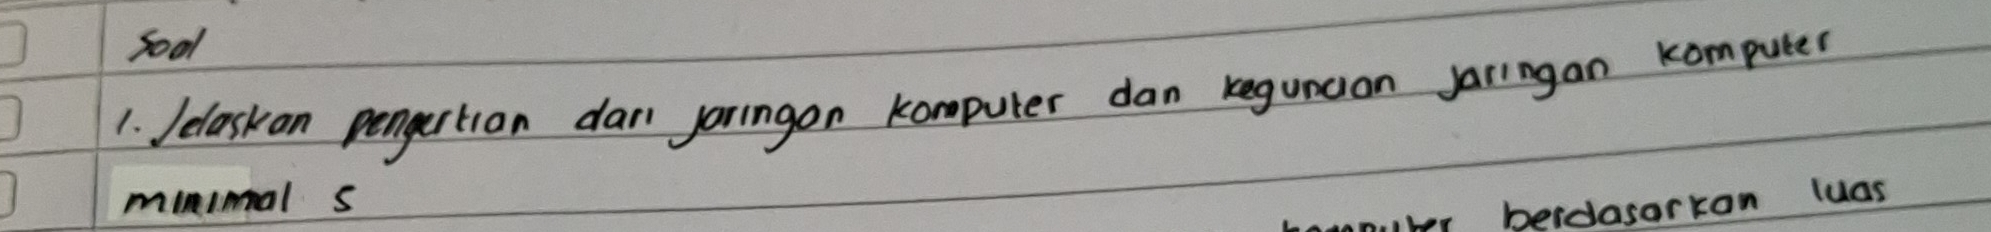 Soal
1. Jelaskan pengertian dari jaringan komputer dan kegunaan jaringan komputer
minimal 5
komputer berdasarkan luas